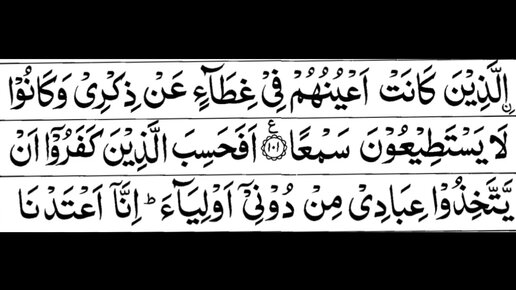 اۨلَّذِيْنَ كَانَتْ اَعْيُنُهُمْ فِيْ غِطَآءٍ عَنْ ذِكْرِيْ وَكَانُوْا
لَا يَسْتَطِيْعُوْنَ سَمْعًا ۟ع ١٠١ اَفَحَسِبَ الَّذِيْنَ كَفَرُوْۤا اَنْ
يَّتَّخِذُوْا عِبَادِيْ مِنْ دُوْنِيْۤ اَوْلِيَآءَ ؕ اِنَّاۤ اَعْتَدْنَا